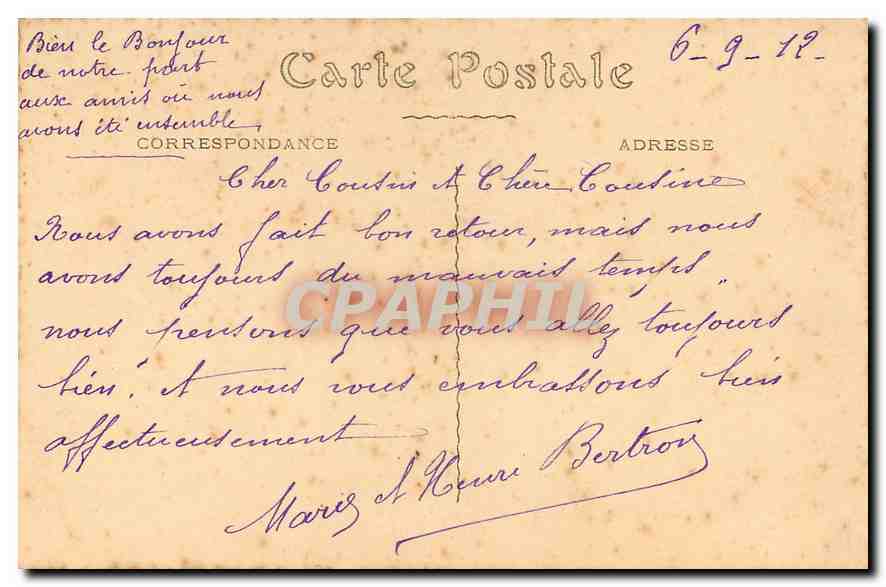 Bien le Bonjour
de notre part
aux amis où nous
avons été ensemble,
Carte Postale
6-9-12-
CORRESPONDANCE
ADRESSE
Cher Cousin et Chère Cousine
Nous avons fait bon retour, mais nous
avons toujours du mauvais temps,,
nous pensons que vous allez toujours
bien. et nous vous embrassons bien
affectueusement
Marie et Henri Bertron
CPAPHIL